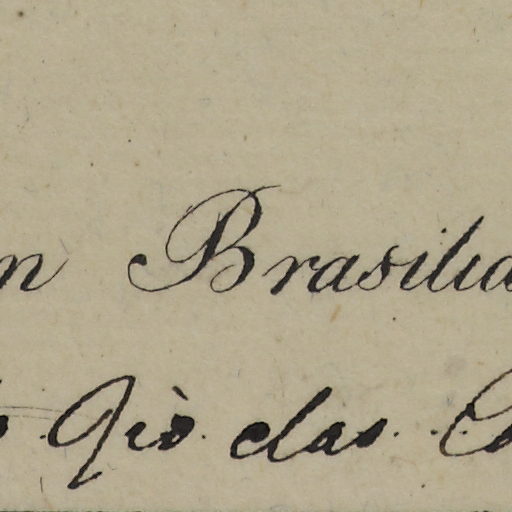 n Brasilia
Rio das